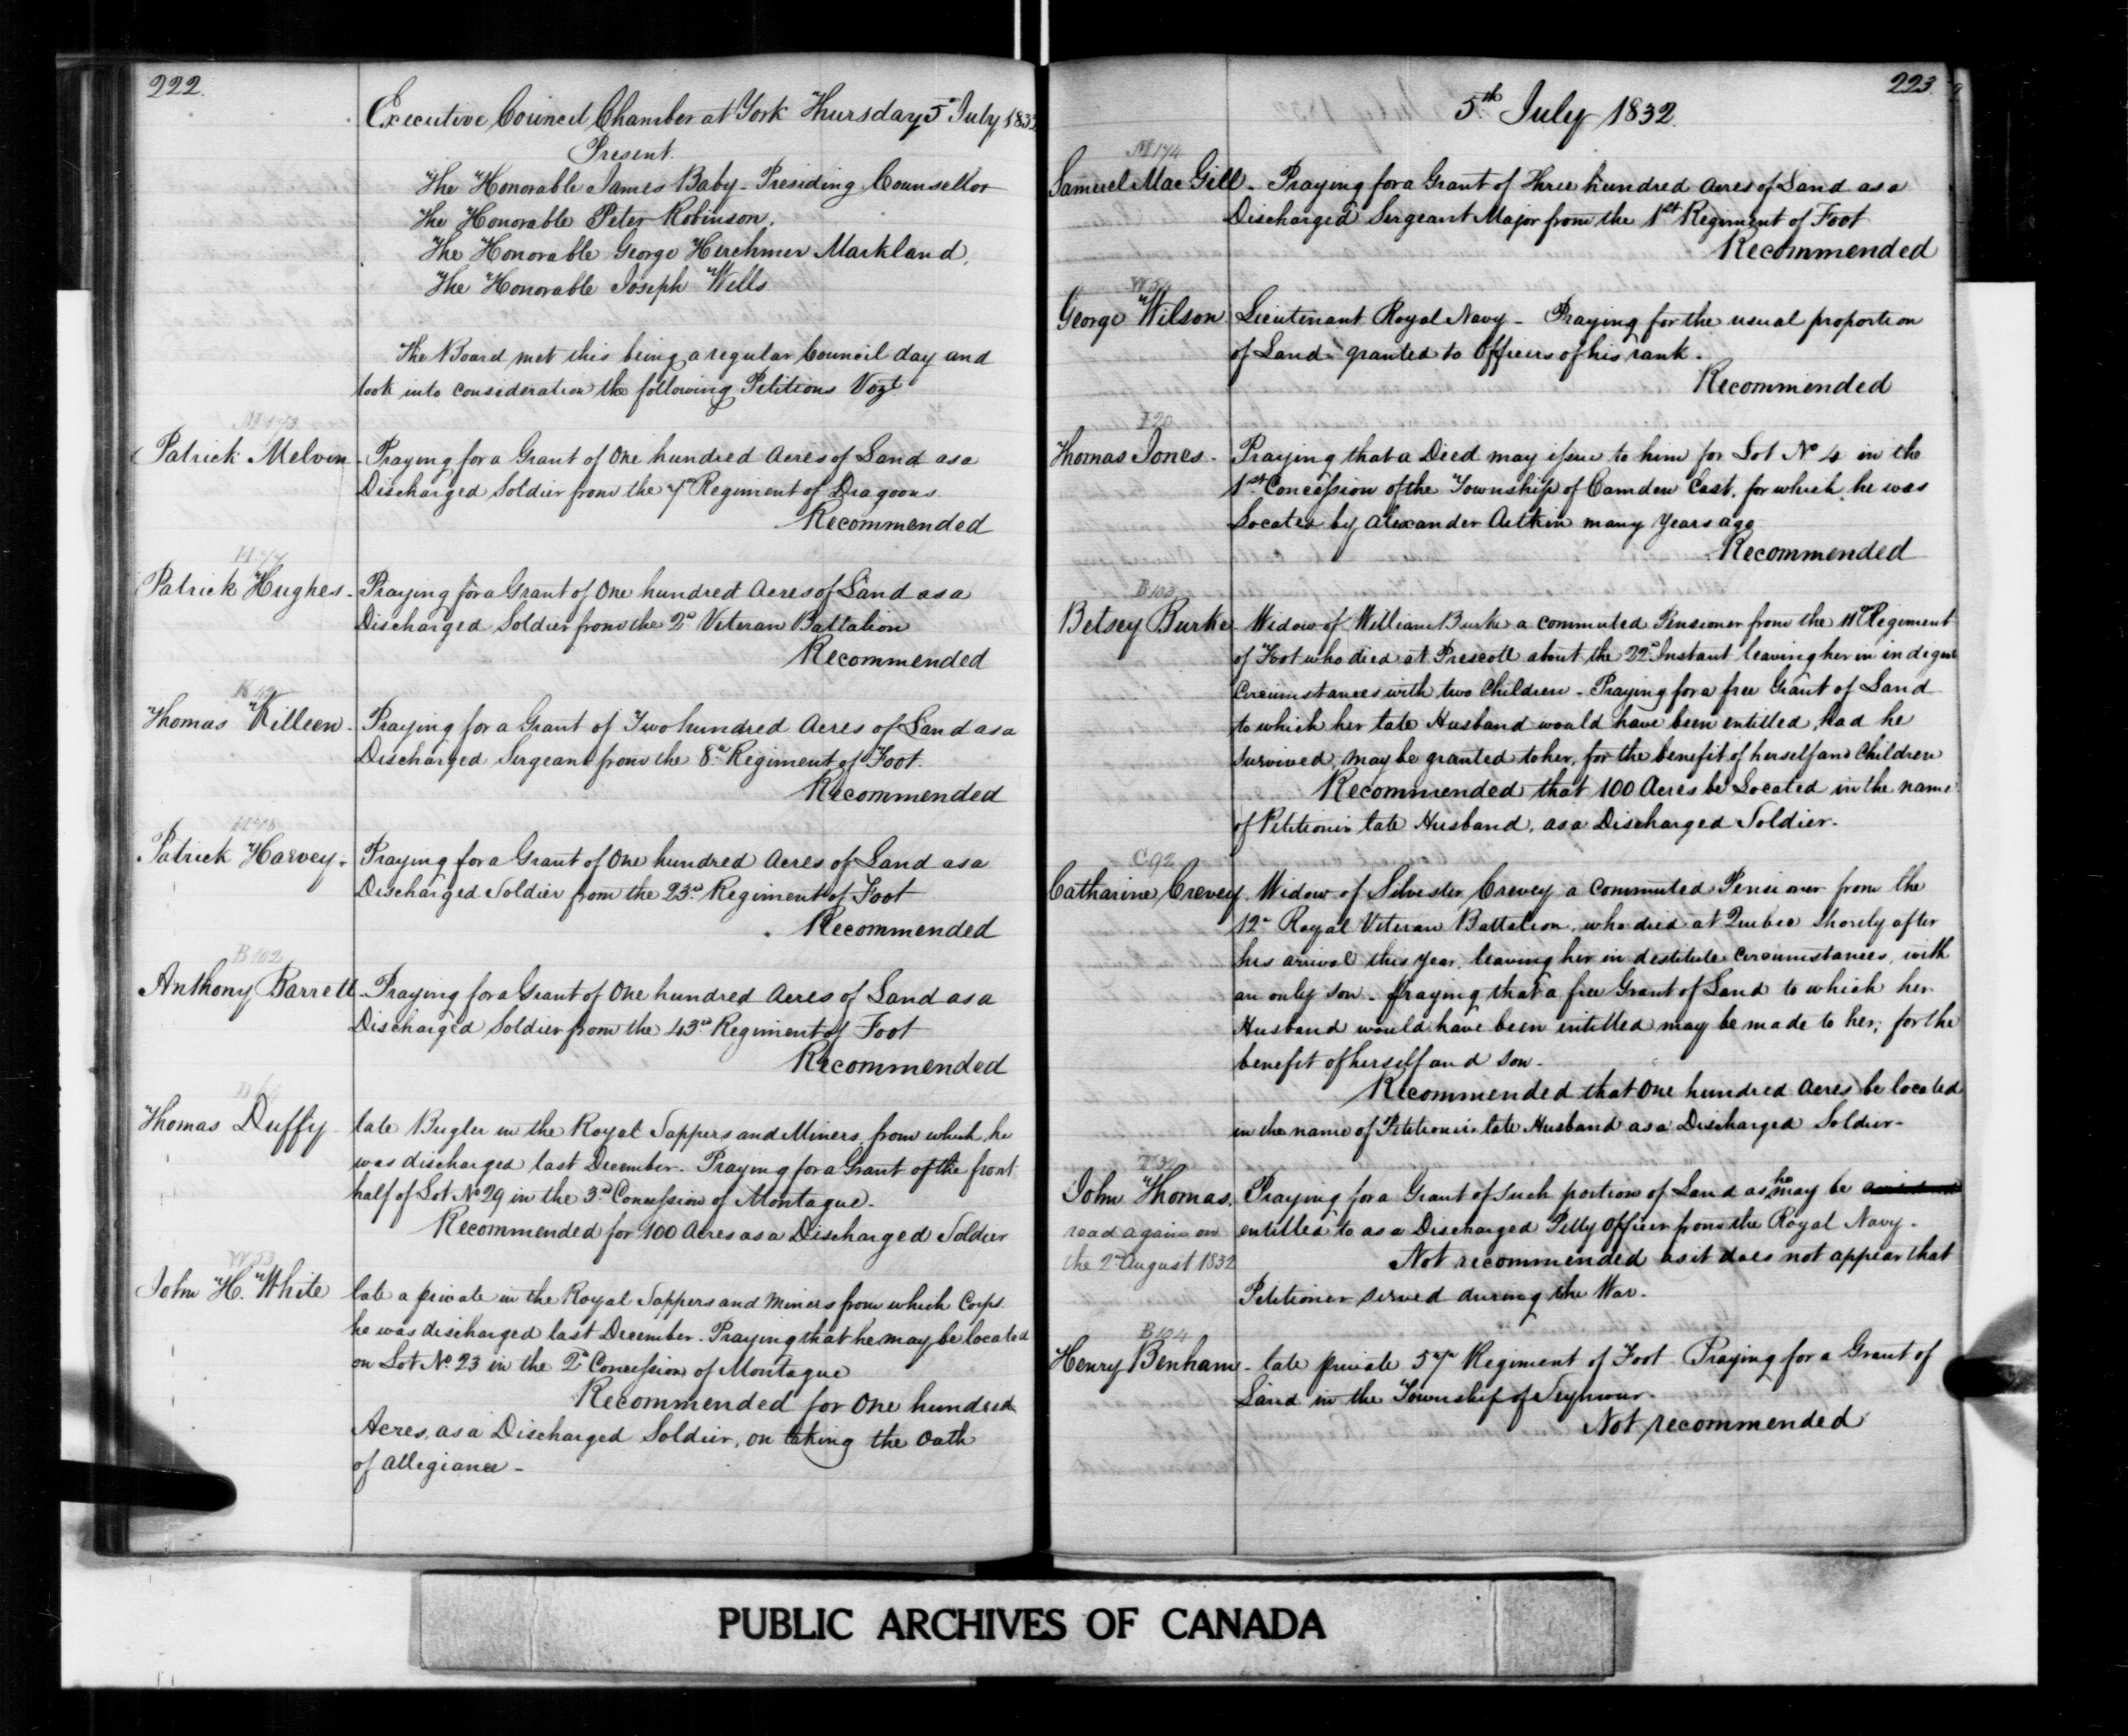 222.
Executive Council Chamber at York Thursday 5th July 1832
Present.
The Honorable James Baby - Presiding Counsellor
The Honorable Peter Robinson.
The Honorable George Herchmer Markland.
The Honorable Joseph Wells
The Board met this being a regular Council day and
took into consideration the following Petitions Vizt
M 173
Patrick Melvin - Praying for a Grant of One hundred Acres of Land as a
Discharged Soldier from the 7th Regiment of Dragoons.
Recommended
H 77
Patrick Hughes - Praying for a Grant of One hundred Acres of Land as a
Discharged Soldier from the 2d Veteran Battalion
Recommended
Thomas Killeen - Praying for a Grant of Two hundred Acres of Land as a
Discharged Sergeant from the 8th Regiment of Foot.
Recommended
H 78
Patrick Harvey - Praying for a Grant of One hundred Acres of Land as a
Discharged Soldier from the 23rd Regiment of Foot
Recommended
B 102
Anthony Barrett - Praying for a Grant of One hundred Acres of Land as a
Discharged Soldier from the 43rd Regiment of Foot
Recommended
Thomas Duffy - late Bugler in the Royal Sappers and Miners, from which he
was discharged last December. Praying for a Grant of the front
half of Lot No 29 in the 3rd Concession of Montague.
Recommended for 100 Acres as a Discharged Soldier
W 53
John H. White late a private in the Royal Sappers and Miners from which Corps
he was discharged last December. Praying that he may be located
on Lot No. 23 in the 2d Concession of Montague
Recommended for One hundred
Acres, as a Discharged Soldier, on taking the Oath
of Allegiance -
223
5th July 1832.
M 174
Samuel Mac Gill - Praying for a Grant of Three hundred Acres of Land as a
Discharged Sergeant Major from the 1st Regiment of Foot
Recommended
W 54
George Wilson Lieutenant Royal Navy - Praying for the usual proportion
of Land granted to Officers of his rank.
Recommended
I 20
Thomas Jones - Praying that a Deed may issue to him for Lot No 4 in the
1st Concession of the Township of Camden East, for which he was
Located by Alexander Aitkin many Years ago
Recommended
B 103
Betsey Burke Widow of William Burke a commuted Pensioner from the 11th Regiment
of Foot who died at Prescott about the 22d Instant leaving her in indigent
Circumstances with two Children - Praying for a free Grant of Land
to which her late Husband would have been entitled, had he
survived, may be granted to her, for the benefit of herself and Children
Recommended that 100 Acres be Located in the name
of Petitioners late Husband, as a Discharged Soldier.
C 92
Catharine Crevey Widow of Silvester Crevey a Commuted Pensioner from the
12th Royal Veteran Battalion, who died at Quebec shorely after
his arrival this Year, leaving her in destitute Circumstances, with
an only son - Praying that a free Grant of Land to which her
Husband would have been intitled may be made to her, for the
benefit of herself and son -
Recommended that One hundred Acres be located
in the name of Petitioners late Husband as a Discharged Soldier -
T 32
John Thomas. Praying for a Grant of such portion of Land as he may be
read again on entitled to as a Discharged Petty Officer from the Royal Navy -
the 2d August 1832 Not recommended as it does not appear that
Petitioner served during the War.
B 104
Henry Benham - late private 57th Regiment of Foot - Praying for a Grant of
Land in the Township of Seymour.
Not recommended
PUBLIC ARCHIVES OF CANADA